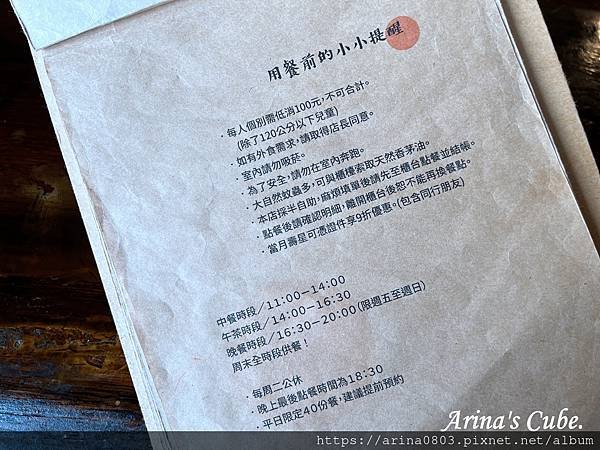 用餐前的小小提醒
·每人個別需低消100元，不可合計。
(除了120公分以下兒童)
·如有外食需求，請取得店長同意。
·室內請勿吸菸。
·為了安全，請勿在室內奔跑。
·大自然蚊蟲多，可與櫃檯索取天然香茅油。
·本店採半自助，麻煩填單後請先至櫃台點餐並結帳。
·點餐後請確認明細，離開櫃台後恕不能再換餐點。
·當月壽星可憑證件享9折優惠。(包含同行朋友)
中餐時段/11:00-14:00
午茶時段/14:00-16:30
晚餐時段/16:30-20:00(限週五至週日)
周末全時段供餐！
·每周二公休
·晚上最後點餐時間為18:30
·平日限定40份餐，建議提前預約
Arina's Cube.
https://arina0803.pixnet.net/album